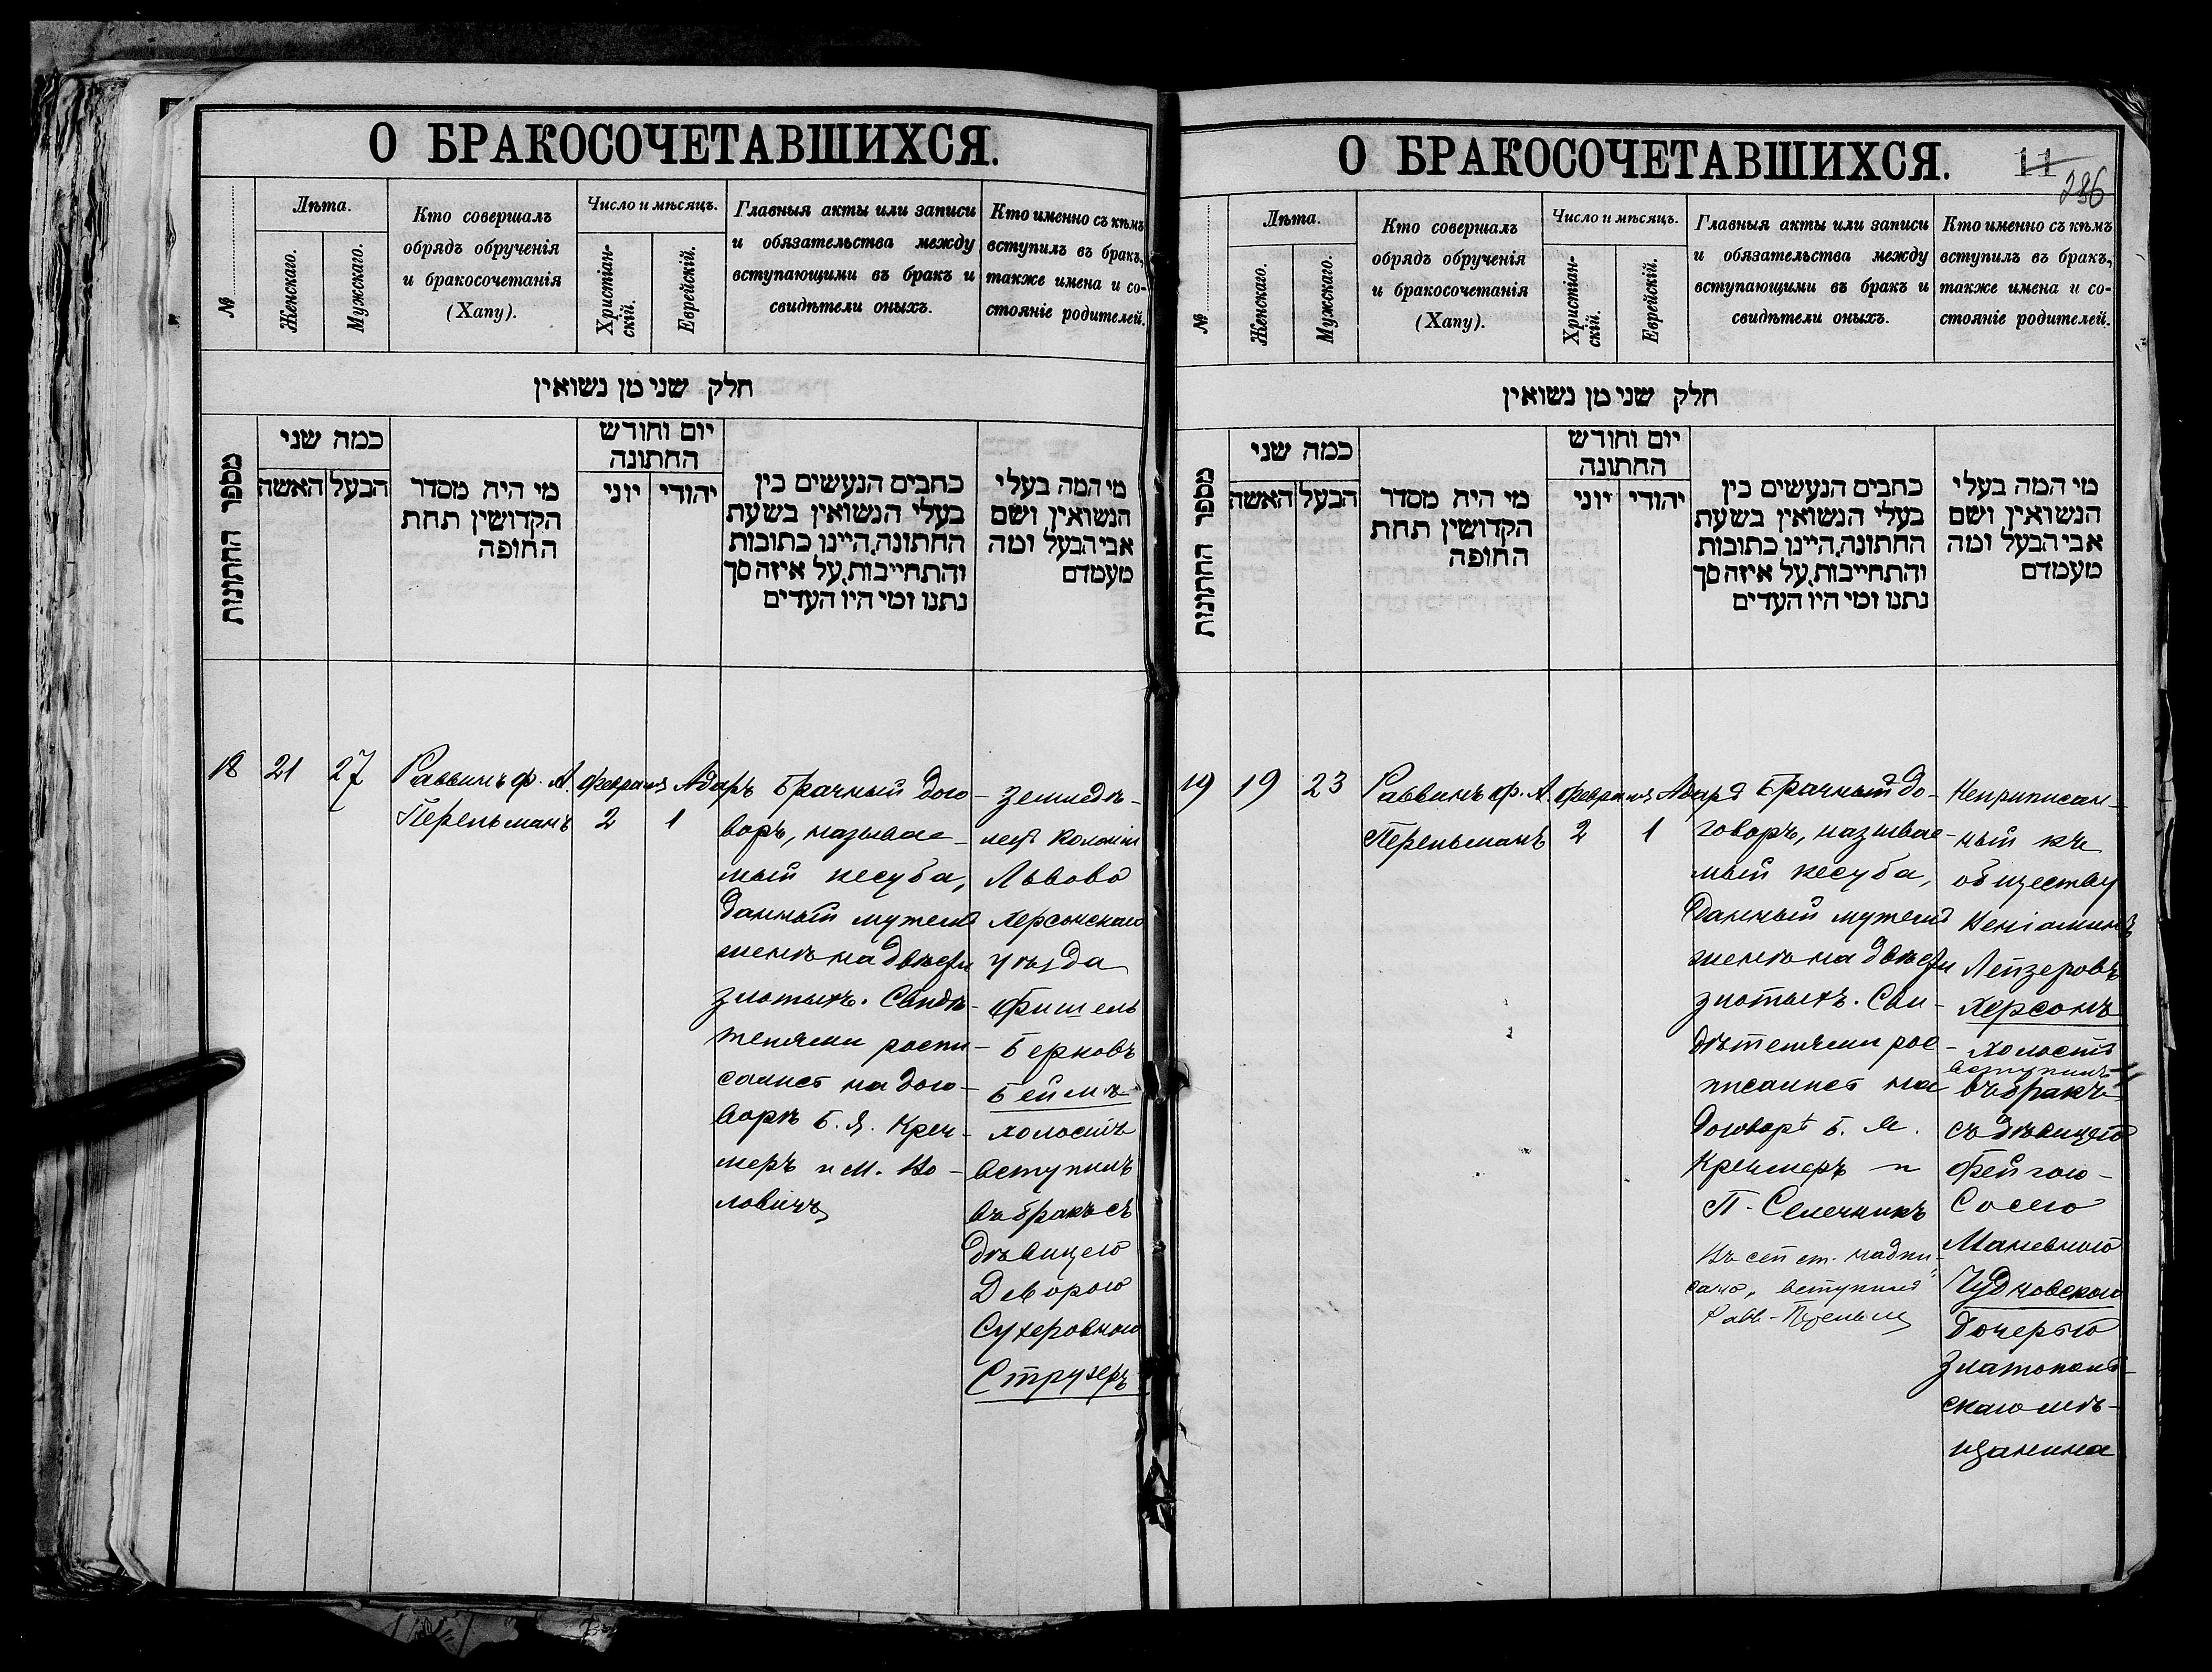 О БРАКОСОЧЕТАВШИХСЯ.
№
Лѣта.
Женскаго.
Мужскаго.
Кто совершалъ
обрядъ обрученія
и бракосочетанія
(Хапу).
Число и мѣсяцъ.
Христіан-
скій.
Еврейскій.
Главныя акты или записи
и обязательства между
вступающими въ бракъ и
свидѣтели оныхъ.
Кто именно съ кѣмъ
вступилъ въ бракъ,
также имена и со-
стояніе родителей.
חלק שני מן נשואין
מספר החתונות
כמה שני
האשה
הבעל
מי היה מסדר
הקדושין תחת
החופה
יום וחודש
החתונה
יוני
יהודי
כתבים הנעשים בין
בעלי הנשואין בשעת
החתונה, היינו כתובות
והתחייבות, על איזה סך
נתנו ומי היו העדים
מי המה בעלי
הנשואין ושם
אבי הבעל ומה
מעמדם
18
21
27
Раввинъ Ф. А.
Перельманъ
Февраля
2
Адаръ
1
Брачный дого-
воръ, называе-
мый кесуба,
данный мужемъ
женѣ на двѣсти
злотыхъ. Свидѣ-
телями распи-
сались на дого-
ворѣ Б. Я. Крей-
меръ и М. Во-
ловичъ
Землед-
лец колоніи
Львово
Херсонскаго
уѣзда
Фишель
Берковъ
Беймъ
холостъ
вступилъ
въ бракъ съ
дѣвицею
Деворою
Сухеровною
Струхеръ
О БРАКОСОЧЕТАВШИХСЯ.
11
286
№
Лѣта.
Женскаго.
Мужскаго.
Кто совершалъ
обрядъ обрученія
и бракосочетанія
(Хапу).
Число и мѣсяцъ.
Христіан-
скій.
Еврейскій.
Главныя акты или записи
и обязательства между
вступающими въ бракъ и
свидѣтели оныхъ.
Кто именно съ кѣмъ
вступилъ въ бракъ,
также имена и со-
стояніе родителей.
חלק שני מן נשואין
מספר החתונות
כמה שני
האשה
הבעל
מי היה מסדר
הקדושין תחת
החופה
יום וחודש
החתונה
יוני
יהודי
כתבים הנעשים בין
בעלי הנשואין בשעת
החתונה, היינו כתובות
והתחייבות, על איזה סך
נתנו ומי היו העדים
מי המה בעלי
הנשואין ושם
אבי הבעל ומה
מעמדם
19
19
23
Раввинъ Ф. А.
Перельманъ
Февраля
2
Адаръ
1
Брачный до-
говоръ, называе-
мый кесуба,
данный мужемъ
женѣ на двѣсти
злотыхъ. Сви-
дѣтелями рос-
писались на
договорѣ Б. М.
Креймеръ и
П. Селечникъ
Въ сей ст. надпи-
сано „вступилъ"
Равв. Перельм
Неприписан-
ный къ
обществу
Веніаминъ
Лейзеровъ
Херсонъ
холостъ
вступилъ
въ бракъ
съ дѣвицею
Фейгою-
Сосею
Маневною
Чудновскою
дочерью
Златополь-
скаго мѣ-
щанина